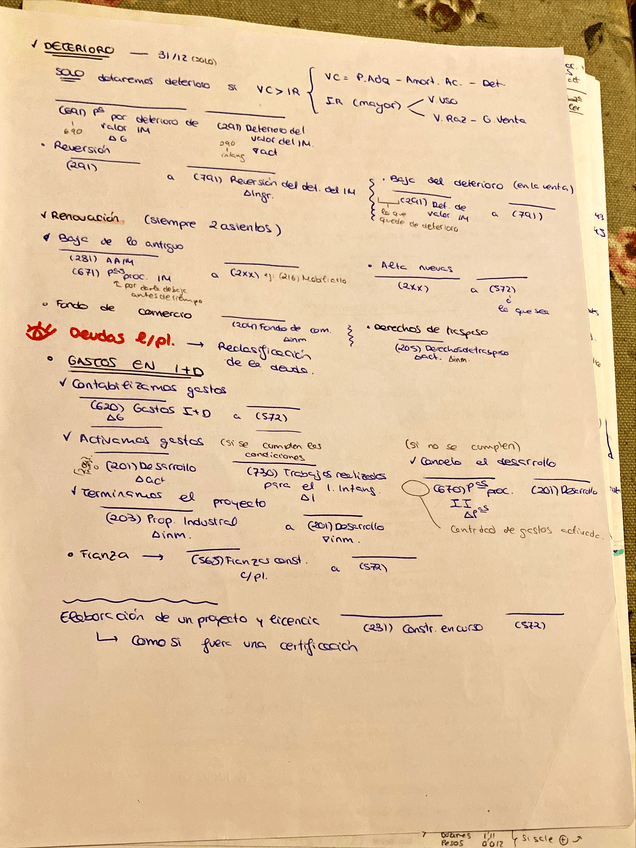 ✓ DETERIORO — 31/12 (SOLO)
SOLO dotaremos deterioro si VC > IR { VC = P.Adq - Amort. Ac. - Det.
IR (mayor) < V.uso
V. Raz - G. Venta
(691) Pª por deterioro de valor IM
690 intang
ΔG
(291) Deterioro del valor del IM.
290 intang ∇act
• Reversión
(291) a (791) Reversión del det. del IM
ΔIngr.
• Baja del deterioro (en la venta)
(291) Det. de valor IM a (791)
lo que quede de deterioro
✓ Renovación (siempre 2 asientos)
Baja de lo antiguo
(281) AAIM
(671) Pªs proc. IM a (2XX) ej: (216) Mobiliario
↳ por darlo de baja antes de tiempo
• Alta nuevas
(2XX) a (572)
ó
lo que sea
• Fondo de comercio (204) Fondo de com.
Δinm
• Derechos de traspaso
(205) Derechos de traspaso
Δact. Δinm
Deudas l/pl. → Reclasificación de la deuda.
• GASTOS EN I+D
✓ Contabilizamos gastos
(620) Gastos I+D a (572)
ΔG
✓ Activamos gastos (si se cumplen las condiciones
(201) Desarrollo
Δact
(730) Trabajos realizados para el I. Intang.
ΔI
(si no se cumplen)
✓ Cancelo el desarrollo
(670) Pªs proc. II
ΔPªs
(201) Desarrollo
Cantidad de gastos activada.
✓ Terminamos el proyecto
(203) Prop. Industrial a (201) Desarrollo
Δinm. ∇inm.
• Fianza → (565) Fianzas const. c/pl. a (572)
Elaboración de un proyecto y licencia (231) Constr. en curso (572)
↳ Como si fuera una certificación
Dolares 1'11
Pesos 0'012
Si sale ⊕